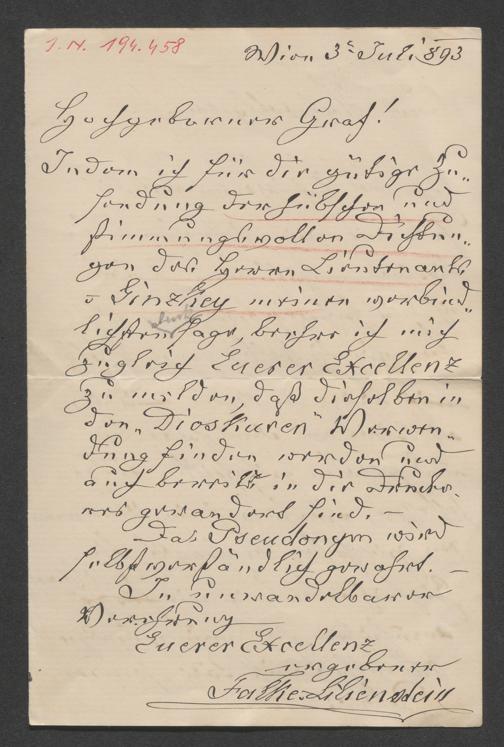 I. N. 194.458
Wien 3t Juli 893
Hochgeborner Graf!
Indem ich für die gütige Zu-
sendung der hübschen und
stimmungsvollen Dichtun-
gen des Herrn Lieutenants
v Ginzkey meinen verbind-
Dank
lichsten sage, beehre ich mich
zugleich Euerer Excellenz
zu melden, daß dieselben in
den „Dioskuren" Verwen-
dung finden werden und
auch bereits in die Drucke-
rei gewandert sind. –
Das Pseudonym wird
selbstverständlich gewahrt. –
In unwandelbarer
Verehrung
Euerer Excellenz
ergebener
Falke-Lilienstein